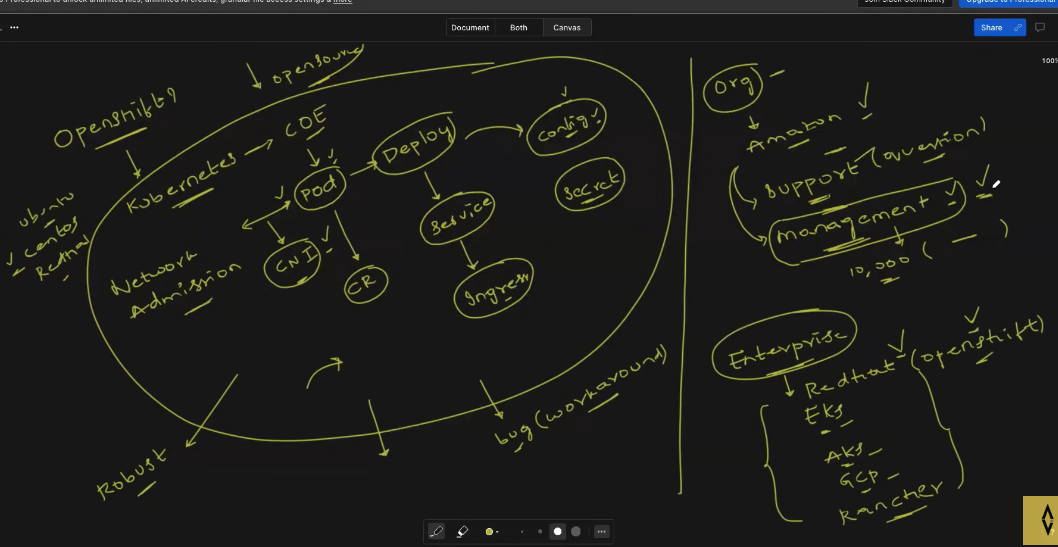 Professional to unlock unlimited files, unlimited AI credits, granular file access settings & more
Join Slack Community
Upgrade to Professional
Document Both Canvas
Share
100%
opensource
Openshift?
Kubernetes → COE
pod
Deploy
Config
Secret
Service
Ingress
CNI
CR
ubuntu
Centos
Redhat
Network
Admission
Robust
bug (workaround)
Org
Amazon
Support (question)
management
10,000 ( )
Enterprise
Redhat (openshift)
EKS
AKS
GCP
Rancher